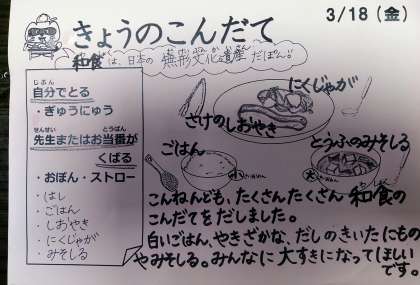 きょうのこんだて
3/18(金)
和食は、日本の無形文化遺産だぽん!!
じぶん
自分でとる
・ぎゅうにゅう
せんせい とうばん
先生またはお当番が
くばる
・おぼん・ストロー
・はし
・ごはん
・しおやき
・にくじゃが
・みそしる
にくじゃが
さけのしおやき
ごはん
とうふのみそしる
こんねんども、たくさんたくさん和食の
こんだてをだしました。
白いごはん、やきざかな、だしのきいたにもの
やみそしる。みんなに大すきになってほしい
です。